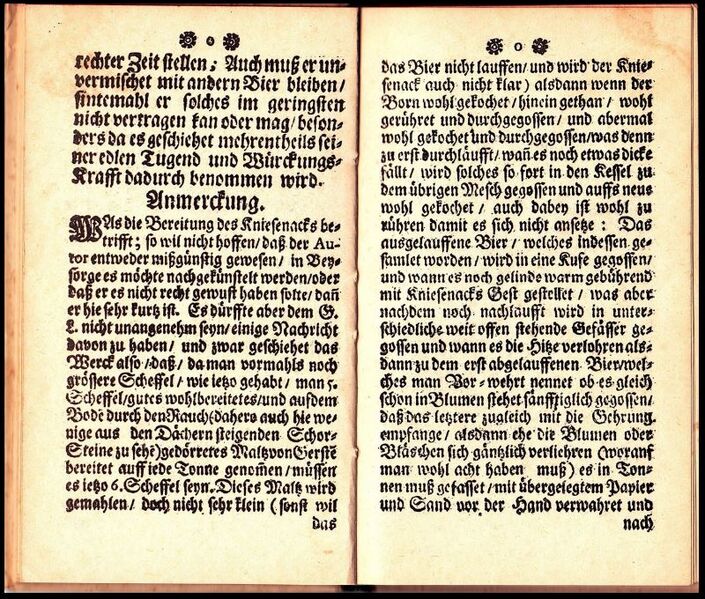 rechter Zeit stellen; Auch muß er un-
vermischet mit andern Bier bleiben/
sintemahl er solches im geringsten
nicht vertragen kan oder mag/ beson-
ders da es geschiehet mehrentheils sei-
ner edlen Tugend und Würckungs-
Krafft dadurch benommen wird.
Anmerckung.
WAs die Bereitung des Kniesenacks be-
trifft; so wil nicht hoffen/ daß der Au-
tor entweder mißgünstig gewesen/ in Bey-
sorge es möchte nachgekünstelt werden/oder
daß er es nicht recht gewust haben solte/ dañ
er hie sehr kurtz ist. Es dürffte aber dem G.
L. nicht unangenehm seyn/ einige Nachricht
davon zu haben/ und zwar geschiehet das
Werck also/ daß/ da man vormahls noch
grössere Scheffel/ wie ietzo gehabt/ man 5.
Scheffel/gutes wohlbereitetes/ und auf dem
Bode durch den Rauch (dahero auch hie we-
nige aus den Dächern steigenden Schor-
Steine zu sehē) gedörretes Maltz von Gerstē
bereitet auff jede Tonne genom̃en/ müssen
es ietzo 6. Scheffel seyn. Dieses Maltz wird
gemahlen/ doch nicht sehr klein (sonst wil
das
o
das Bier nicht lauffen/ und wird der Knie-
senack auch nicht klar) alsdann wenn der
Born wohl gekochet/ hinein gethan/ wohl
gerühret und durchgegossen/ und abermal
wohl gekochet und durchgegossen/was denn
zu erst durchläufft/ wañ es noch etwas dicke
fällt/ wird solches so fort in den Kessel zu
dem übrigen Mesch gegossen und auffs neue
wohl gekochet/ auch dabey ist wohl zu
rühren damit es sich nicht ansetze: Das
ausgelauffene Bier/ welches indessen ge-
samlet worden/ wird in eine Kufe gegossen/
und wann es noch gelinde warm gebührend
mit Kniesenacks Gest gestellet/ was aber
nachdem noch nachlaufft wird in unter-
schiedliche weit offen stehende Gefässer ge-
gossen und wann es die Hitze verlohren als-
dann zu dem erst abgelauffenen Bier/wel-
ches man Vor-wehrt nennet ob es gleich
schon in Blumen stehet sänfftiglich gegossen/
daß das letztere zugleich mit die Gehrung
empfange/ alsdann ehe die Blumen oder
Bläschen sich gäntzlich verliehren (worauf
man wohl acht haben muß) es in Ton-
nen muß gefasset/ mit übergelegtem Papier
und Sand vor der Hand verwahret und
nach